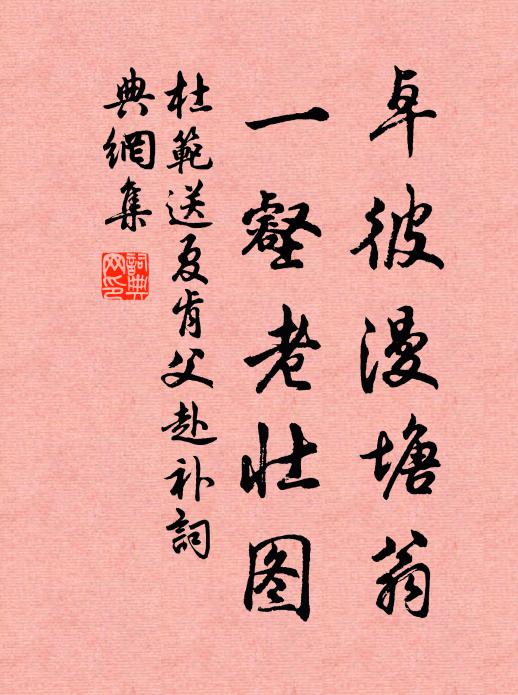 卓彼漫塘翁
一壑老壮图
杜範送夏肯父赴补詞
典網集
詞典
网印